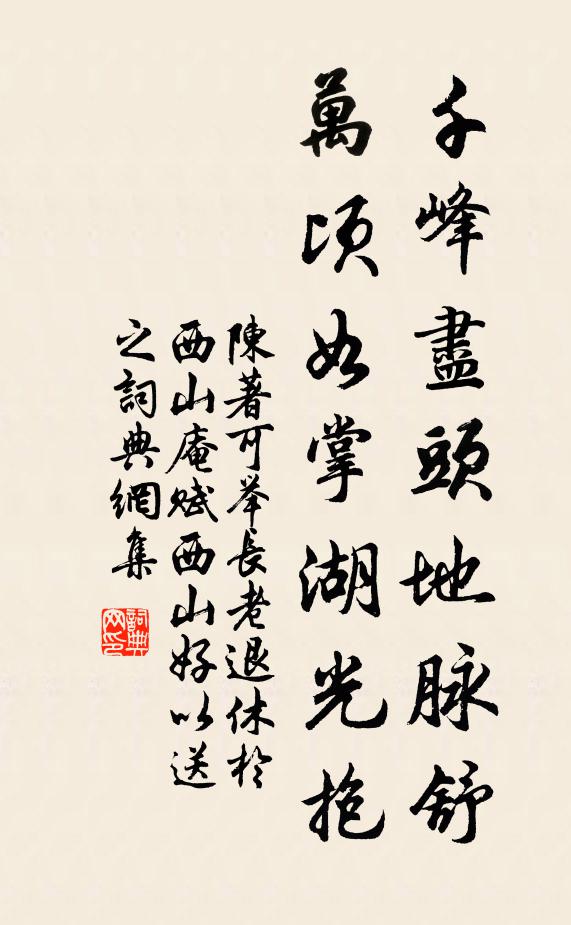 千峰盡頭地脉舒
萬頃如掌湖光抱
陳著可举長老退休於
西山庵賦西山好以送
之詞典網集
詞典
网印